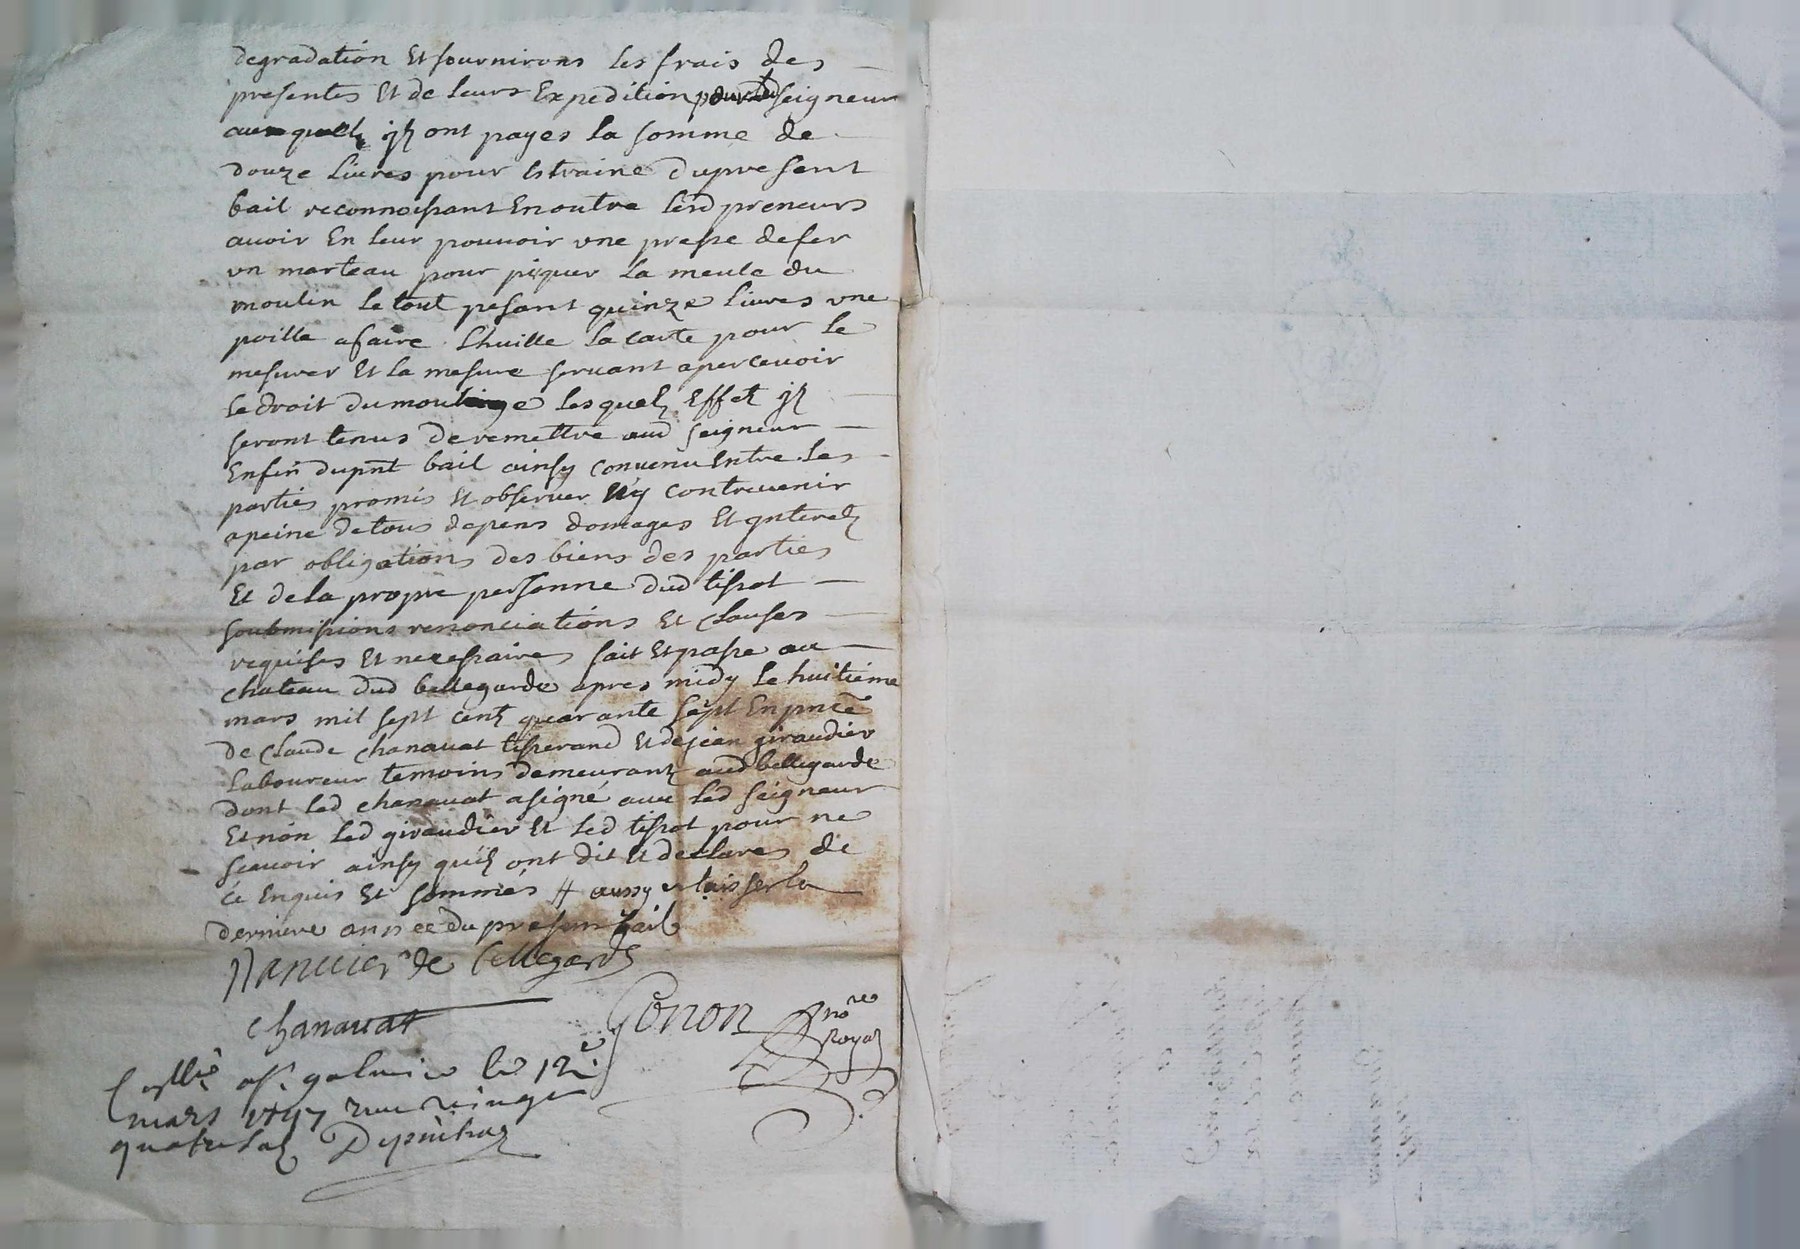 degradation Et fourniront les frais des
presentes Et de leurs Expedition pour led seigneur
auxquels ils ont payes la somme de
douze livres pour Estraine dupresent
bail reconnoissant Enoutre lesd preneurs
avoir En leur pouvoir une presse defer
un marteau pour piquer la meule du
moulin le tout pesant quinze livres une
poille afaire Lhuille la carte pour le
mesurer Et la mesure servant apercevoir
le droit dumoulinage lesquels Effets ils
seront tenus deremettre aud seigneur
Enfin dupnt bail ainsy convenu Entre les
parties promis Et observer Ny contrevenir
apeine detous depens domages Et ynterets
par obligations des biens des parties
Et dela propre personne dud tissot
soubmissions renonciations Et clauses
requises Et necessaires fait Et passe au
chateau dud bellegarde apres midy le huitiéme
mars mil sept cents quarante sept En pnce
de Claude chanavat tisserand Et dejean giraudier
laboureur temoins demeurants aud bellegarde
dont led chanavat asigné avec led seigneur
Et non led giraudier Et led tissot pour ne
scavoir ainsy quils ont dit Et declares de
ce Enquis Et sommés # aussy laisser la
derniere année du present bail
de bellegarde
chanavat
Gonon nore
Royal
a St galmier le 12e
mars 1747 vingt
quatre sols